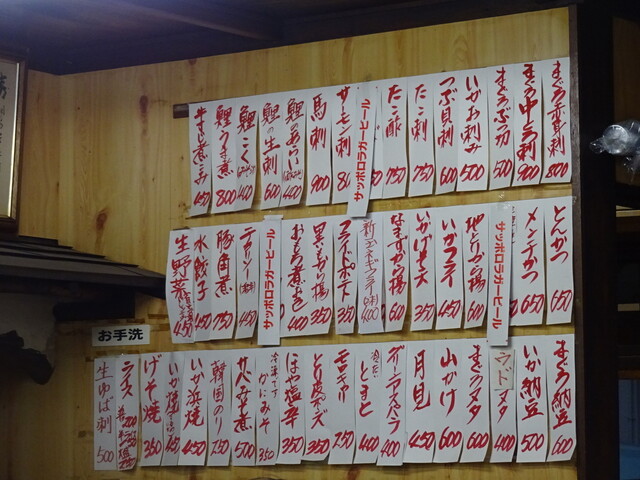 まぐろ赤身刺 800
まぐろ中とろ刺 900
まぐろぶつ切 500
いかお刺み 500
つぶ貝刺 600
たこ刺 750
たこ酢 750
サッポロラガービール
サーモン刺
馬刺 900
鯉のあらい 400
鯉の生刺 600
鯉こく 400
鯉うま煮 800
牛すじ煮こみ 450
とんかつ 650
メンチかつ 650
サッポロラガービール
地とりから揚 600
いかフライ 450
いかげそーズ 350
なまずから揚 600
新玉ネギフライ 400
フライドポテト 350
里いもから揚 350
おもち煮ぶき 400
サッポロラガービール
豚角煮 750
水餃子 450
生野菜 450
お手洗
まぐろ納豆 600
いか納豆 500
ウドヌタ 400
まぐろヌタ 600
山かけ 600
月見 450
グリーンアスパラ 400
とまと 400
エロキュリ 250
とり皮ポンズ 350
ほや塩辛 350
かにみそ 350
サバみそ煮 500
韓国のり 250
いか浜焼 450
いか焼
げそ焼 350
ライス
生ゆば刺 500